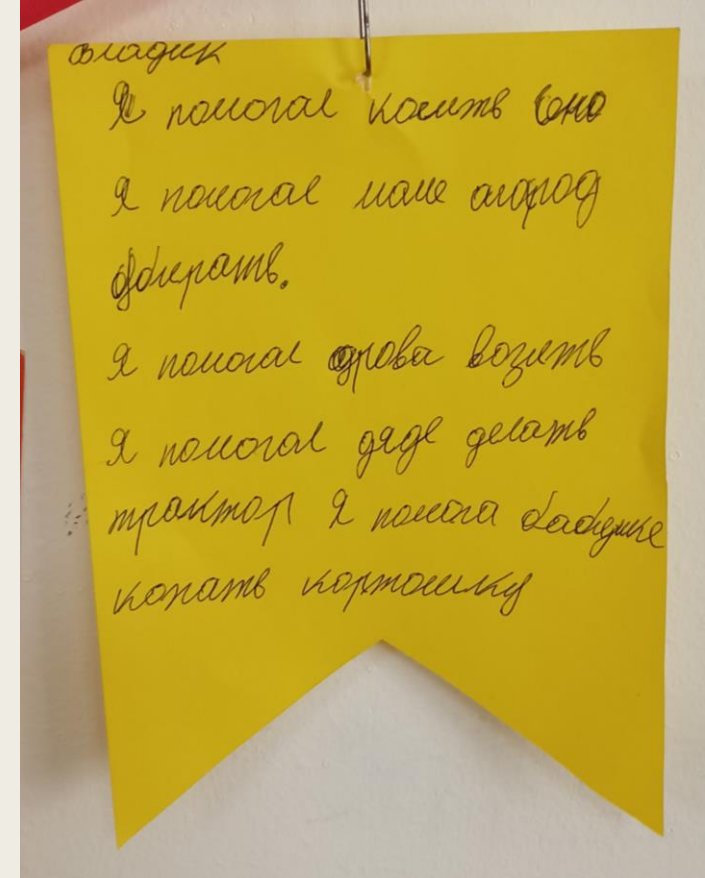 Владик
Я помогал косить сено
Я помогал маме огород
убирать.
Я помогал дрова возить
Я помогал дяде делать
трактор Я помога бабушке
копать картошку